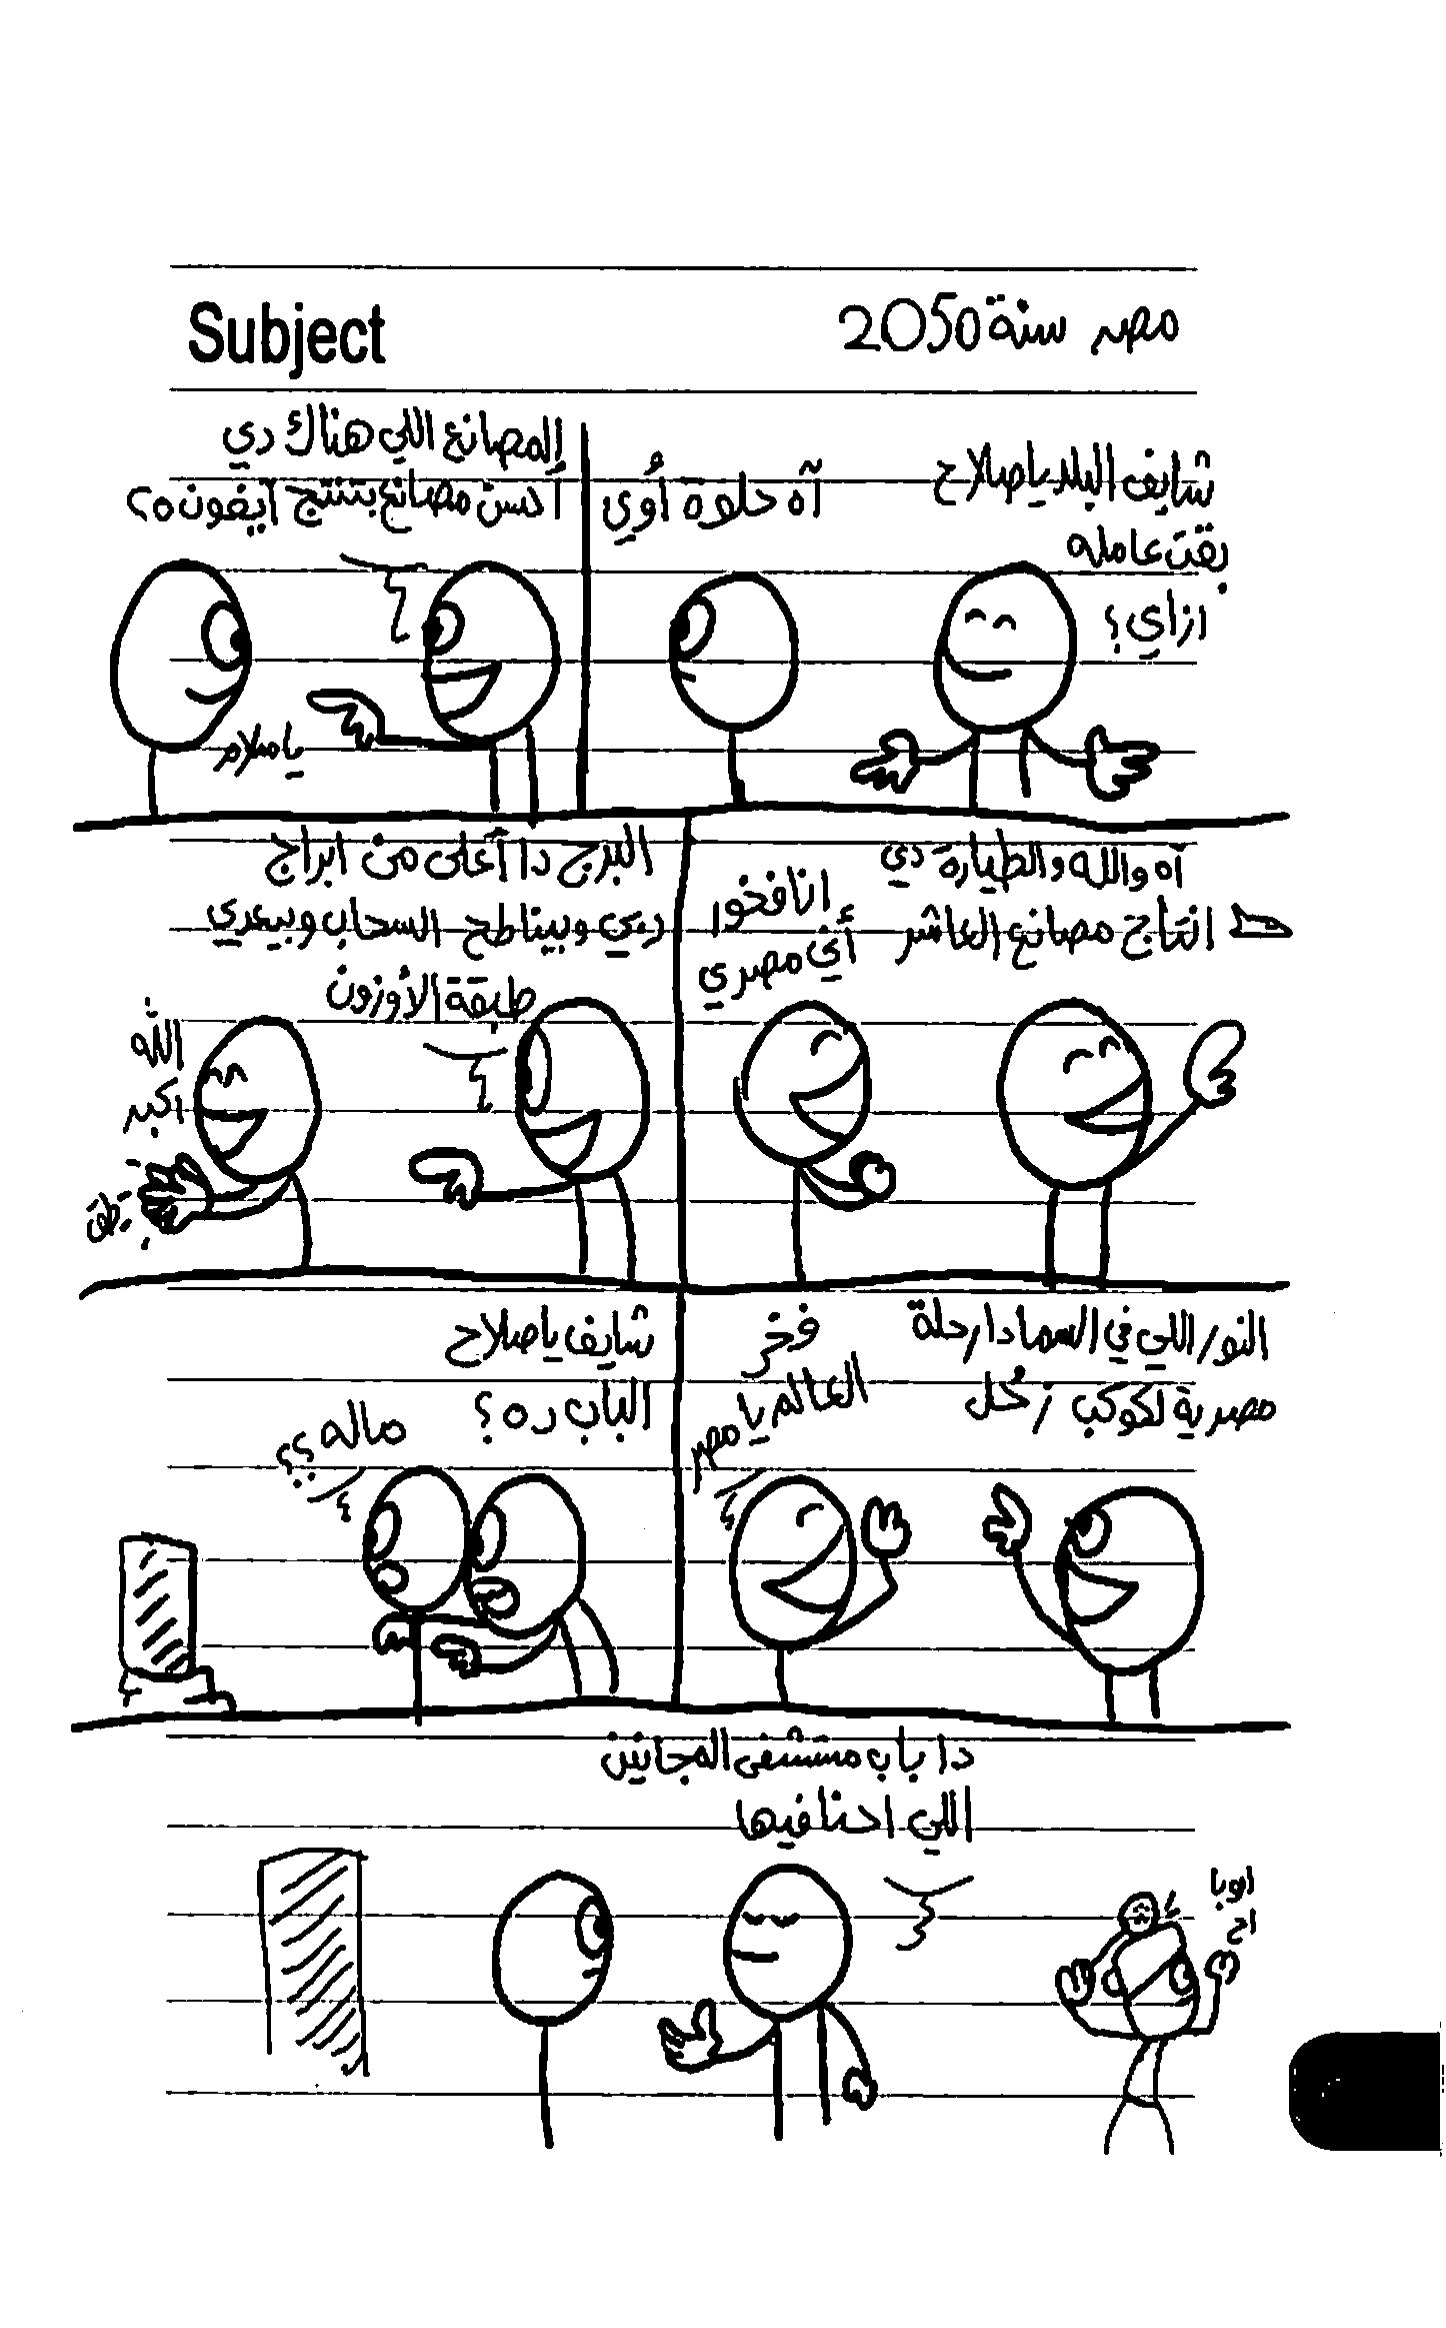 Subject
مصر سنة 2050
شايف البلد يا صلاح
بقت عامله
ازاي؟
آه حلوة أوي
المصانع اللي هناك دي
أحسن مصانع بتنتج آيفون ٥٢
يا سلام
آه والله والطيارة دي
انتاج مصانع العاشر
انا فخور
أني مصري
البرج دا أعلى من ابراج
دبي وبيناطح السحاب وبيعدي
طبقة الأوزون
الله
اكبر
طق
النور اللي في السما دا رحلة
مصرية لكوكب زُحل
فخر
العالم يا مصر
شايف يا صلاح
الباب ده؟
ماله ؟؟
دا باب مستشفى المجانين
اللي احنا فيها
ابوبا
اح